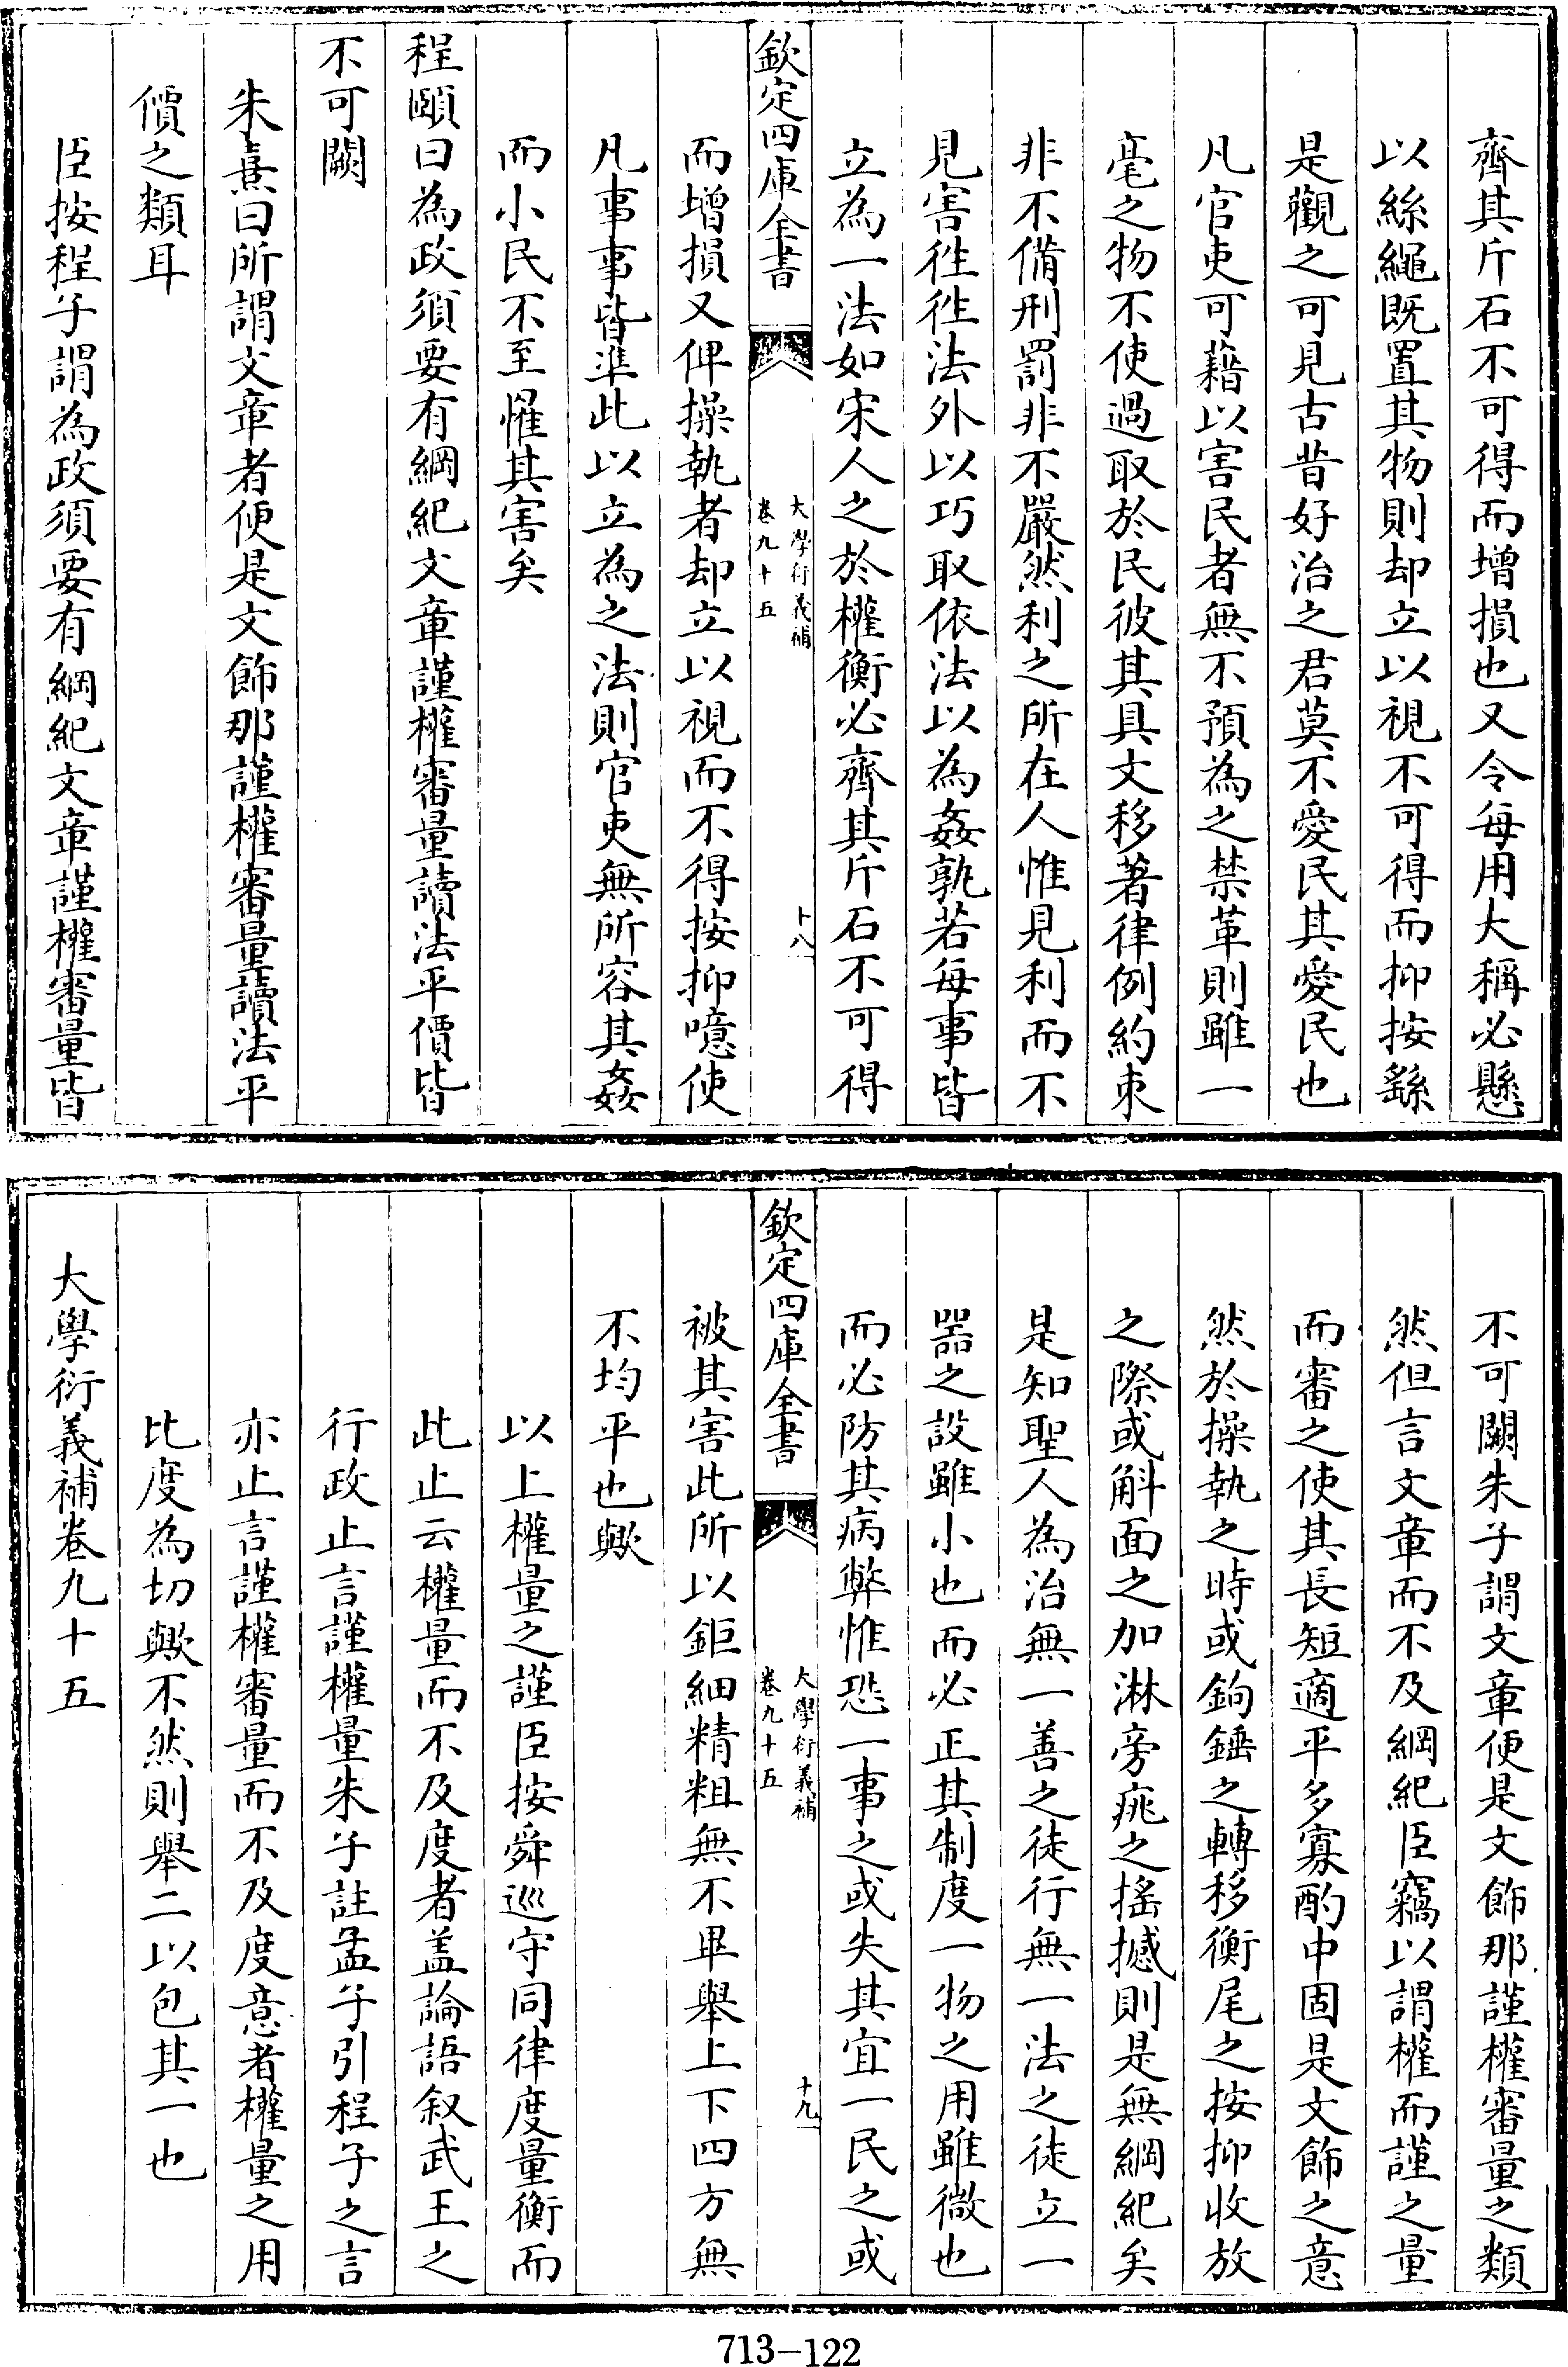 齊其斤石不可得而增損也又令每用大稱必懸
以絲繩既置其物則却立以視不可得而抑按繇
是觀之可見古昔好治之君莫不愛民其愛民也
凡官吏可藉以害民者無不預為之禁革則雖一
毫之物不使過取於民彼其具文移著律例約束
非不備刑罰非不嚴然利之所在人惟見利而不
見害徃徃法外以巧取依法以為姦孰若每事皆
立為一法如宋人之於權衡必齊其斤石不可得
欽定四庫全書
大學衍義補
卷九十五
十八
而增損又俾操執者却立以視而不得按抑噫使
凡事事皆準此以立為之法則官吏無所容其姦
而小民不至罹其害矣
程頤曰為政須要有綱紀文章謹權審量讀法平價皆
不可闕
朱熹曰所謂文章者便是文飾那謹權審量讀法平
價之類耳
臣按程子謂為政須要有綱紀文章謹權審量皆
不可闕朱子謂文章便是文飾那謹權審量之類
然但言文章而不及綱紀臣竊以謂權而謹之量
而審之使其長短適平多寡酌中固是文飾之意
然於操執之時或鉤錘之轉移衡尾之按抑收放
之際或斛面之加淋旁庣之搖撼則是無綱紀矣
是知聖人為治無一善之徒行無一法之徒立一
器之設雖小也而必正其制度一物之用雖微也
而必防其病弊惟恐一事之或失其宜一民之或
欽定四庫全書
大學衍義補
卷九十五
十九
被其害此所以鉅細精粗無不畢舉上下四方無
不均平也歟
以上權量之謹臣按舜巡守同律度量衡而
此止云權量而不及度者盖論語叙武王之
行政止言謹權量朱子註孟子引程子之言
亦止言謹權審量而不及度意者權量之用
比度為切歟不然則舉二以包其一也
大學衍義補卷九十五
713-122